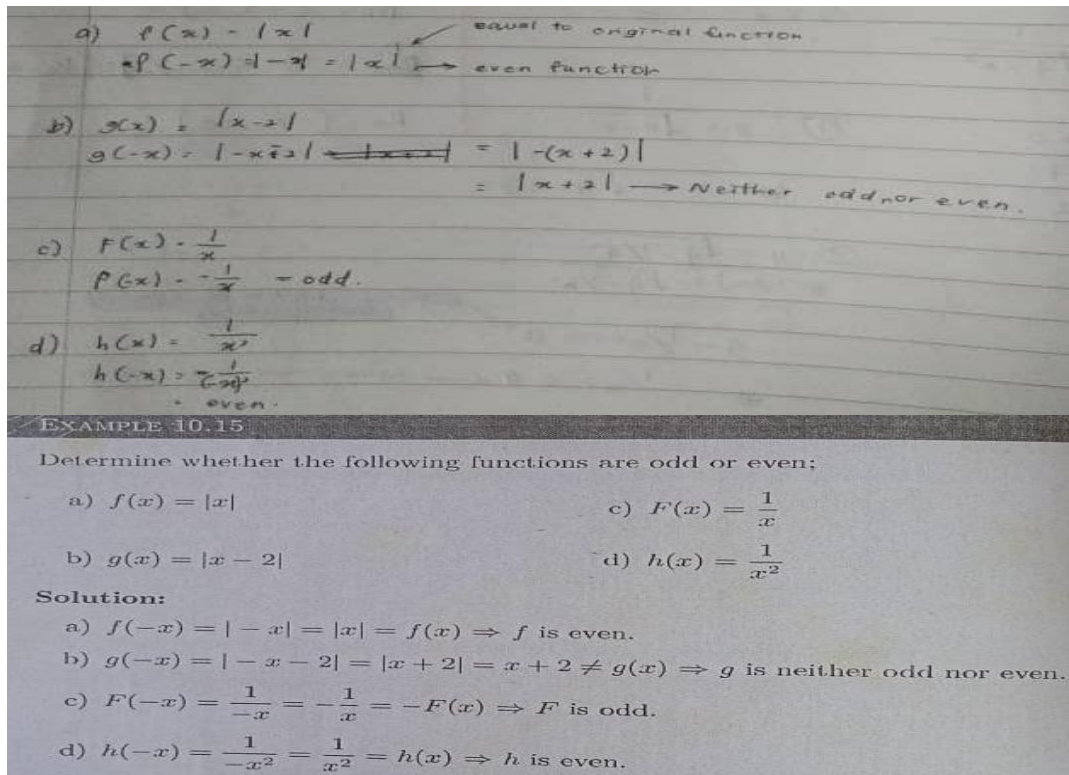 a) f(x) = |x| equal to original function
f(-x) = |-x| = |x| → even function
b) g(x) = |x-2|
g(-x) = |-x-2| = |-(x+2)|
= |x+2| → Neither odd nor even.
c) F(x) = 1/x
F(-x) = -1/x = odd.
d) h(x) = 1/x²
h(-x) = 1/(-x)²
= even.
EXAMPLE 10.15
Determine whether the following functions are odd or even;
a) f(x) = |x| c) F(x) = 1/x
b) g(x) = |x − 2| d) h(x) = 1/x²
Solution:
a) f(−x) = | − x| = |x| = f(x) ⇒ f is even.
b) g(−x) = | − x − 2| = |x + 2| = x + 2 ≠ g(x) ⇒ g is neither odd nor even.
c) F(−x) = 1/−x = −1/x = −F(x) ⇒ F is odd.
d) h(−x) = 1/−x² = 1/x² = h(x) ⇒ h is even.